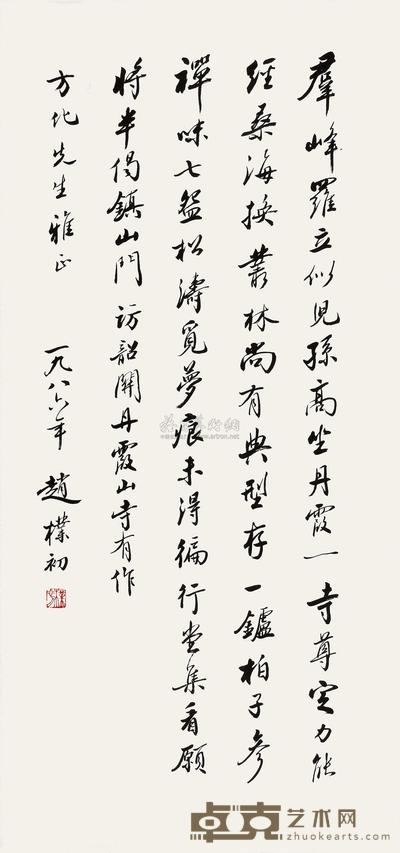 羣峰羅立似児孫高坐丹霞一寺尊定力能
經桑海換叢林尚有典型存一鑪柏子參
禪味七盌松濤覓夢痕未得徧行堂集看願
將半偈鎮山門 訪韶關丹霞山寺有作
方地先生雅正 一九八六年 趙樸初
卓克艺术网
zhuokearts.com